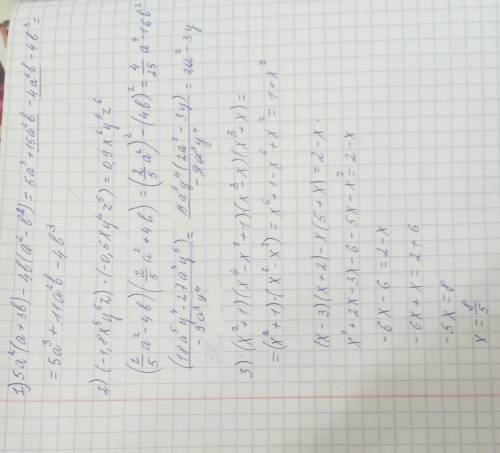 1) 5a²(a+3b) - 4b(a²-b²) = 5a³+15a²b - 4a²b - 4b³ =
= 5a³ + 11a²b - 4b³
2) (-1,8x⁵y⁵z) · (-0,5xy⁴z⁵) = 0,9x⁶y⁹z⁶
(2/5 a² - 4b)(2/5 a² + 4b) = (2/5 a²)² - (4b)² = 4/25 a⁴ - 16b²
(18a⁵y⁴ - 27a³y⁵) / -9a³y⁴ = 9a³y⁴(2a² - 3y) / -9a³y⁴ = 2a² - 3y
3) · (x²+1)(x⁴-x²+1)(x³-x)(x³+x) =
= (x⁶+1) · (x²-x²) = x⁶+1 - x⁶ + x² = 1+x²
(x-3)(x+2) - x(5+x) = 2-x ·
x²+2x-3x-6-5x-x² = 2-x
-6x-6 = 2-x
-6x+x = 2+6
-5x = 8
x = 8/5